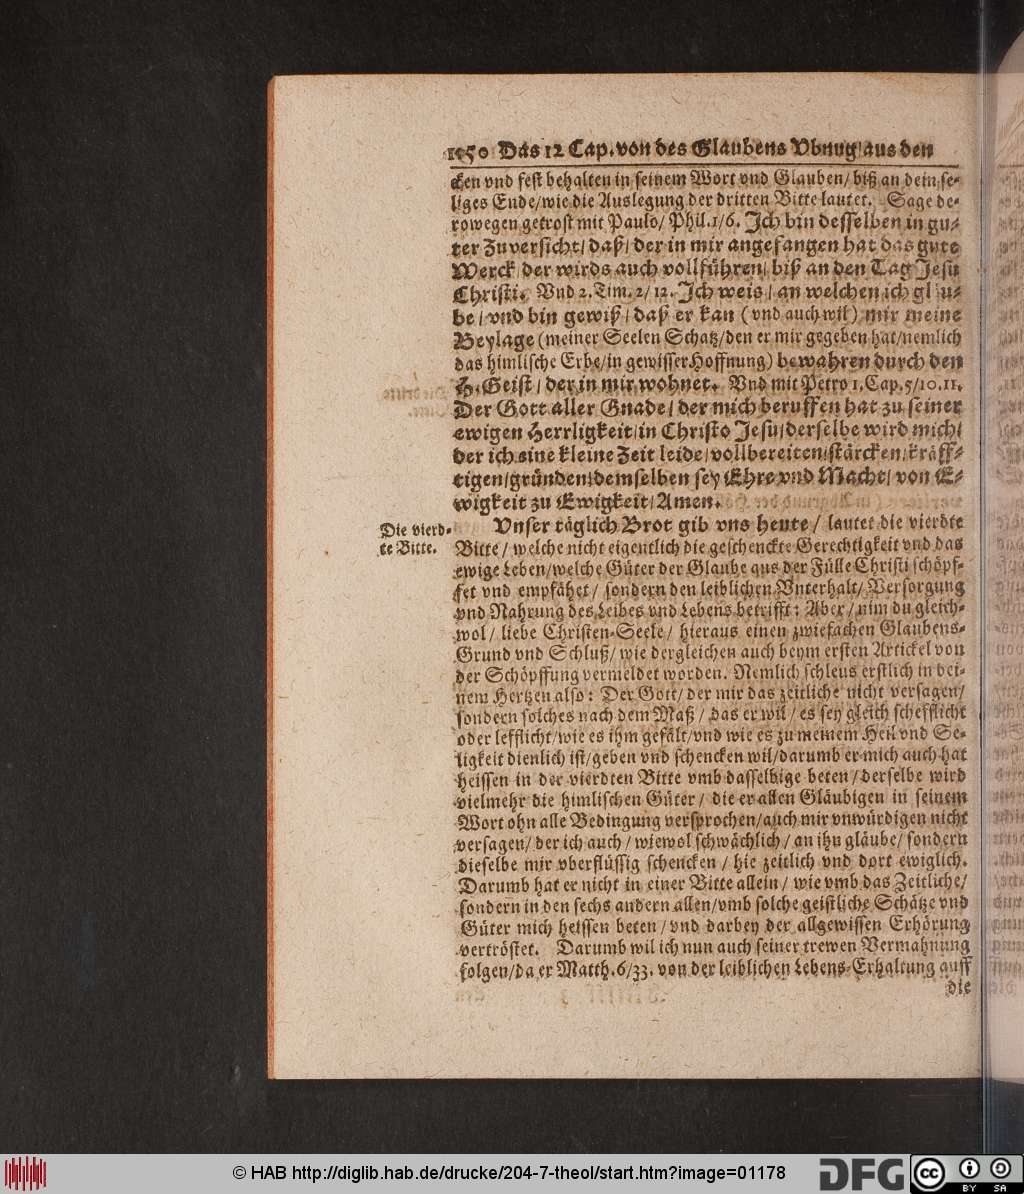 1150 Das 12 Cap. von des Glaubens Vbnug aus den
cken vnd fest behalten in seinem Wort vnd Glauben/ biß an dein se-
liges Ende/wie die Auslegung der dritten Bitte lautet. Sage de-
rowegen getrost mit Paulo/ Phil.1/6. Ich bin desselben in gu-
ter Zuversicht/ daß/ der in mir angefangen hat das gute
Werck/ der wirds auch vollführen/ biß an den Tag Jesu
Christi. Vnd 2. Tim. 2/12. Ich weis/ an welchen ich gläu-
be/ vnd bin gewiß/ daß er kan (vnd auch wil) mir meine
Beylage (meiner Seelen Schatz/den er mir gegeben hat/nemlich
das himlische Erbe/in gewisser Hoffnung) bewahren durch den
H. Geist/ der in mir wohnet. Vnd mit Petro 1. Cap. 5/10.11.
Der Gott aller Gnade/ der mich beruffen hat zu seiner
ewigen Herrligkeit/in Christo Jesu/derselbe wird mich/
der ich eine kleine Zeit leide/vollbereiten/stärcken/kräff-
tigen/gründen/demselben sey Ehre vnd Macht/ von E-
wigkeit zu Ewigkeit/ Amen.
Die vierd-
te Bitte.
Vnser täglich Brot gib vns heute/ lautet die vierdte
Bitte/ welche nicht eigentlich die geschenckte Gerechtigkeit vnd das
ewige Leben/welche Güter der Glaube aus der Fülle Christi schöpf-
fet vnd empfähet/ sondern den leiblichen Vnterhalt/ Versorgung
vnd Nahrung des Leibes vnd Lebens betrifft: Aber/ nim du gleich-
wol/ liebe Christen-Seele/ hieraus einen zwiefachen Glaubens-
Grund vnd Schluß/ wie dergleichen auch beym ersten Artickel von
der Schöpffung vermeldet worden. Nemlich schleus erstlich in dei-
nem Hertzen also: Der Gott/ der mir das zeitliche nicht versagen/
sondern solches nach dem Maß/ das er wil/ es sey gleich schefflicht
oder lefflicht/wie es ihm gefält/vnd wie es zu meinem Heil vnd Se-
ligkeit dienlich ist/geben vnd schencken wil/darumb er mich auch hat
heissen in der vierdten Bitte vmb dasselbige beten/ derselbe wird
vielmehr die himlischen Güter/ die er allen Gläubigen in seinem
Wort ohn alle Bedingung versprochen/auch mir vnwürdigen nicht
versagen/ der ich auch/ wiewol schwächlich/ an ihn gläube/ sondern
dieselbe mir vberflüssig schencken/ hie zeitlich vnd dort ewiglich.
Darumb hat er nicht in einer Bitte allein/ wie vmb das Zeitliche/
sondern in den sechs andern allen/vmb solche geistliche Schätze vnd
Güter mich heissen beten/ vnd darbey der allgewissen Erhörung
vertröstet. Darumb wil ich nun auch seiner trewen Vermahnung
folgen/da er Matth. 6/33. von der leiblichen Lebens-Erhaltung auff
die
© HAB http://diglib.hab.de/drucke/204-7-theol/start.htm?image=01178
DFG
cc
BY SA